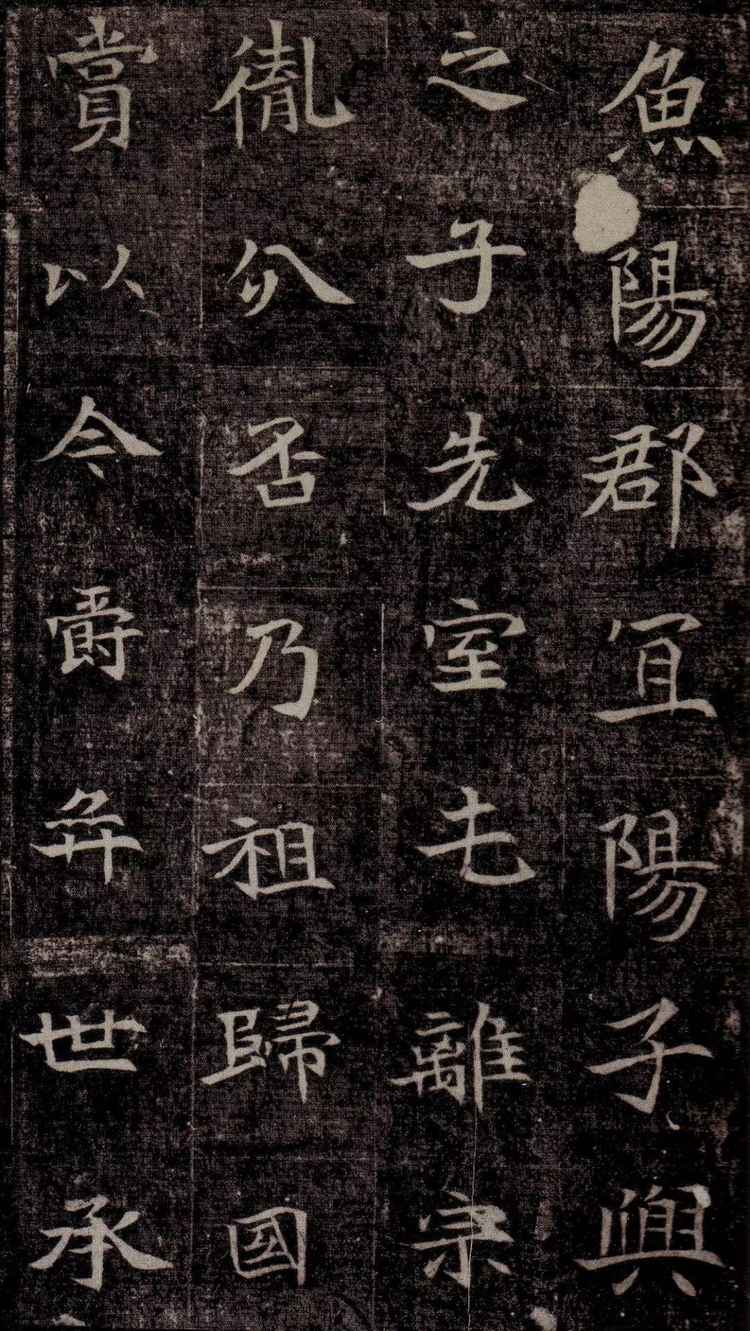 魚陽郡冝陽子興
之子先室屯離宗
胤分否乃祖歸國
賞以今爵弈世承